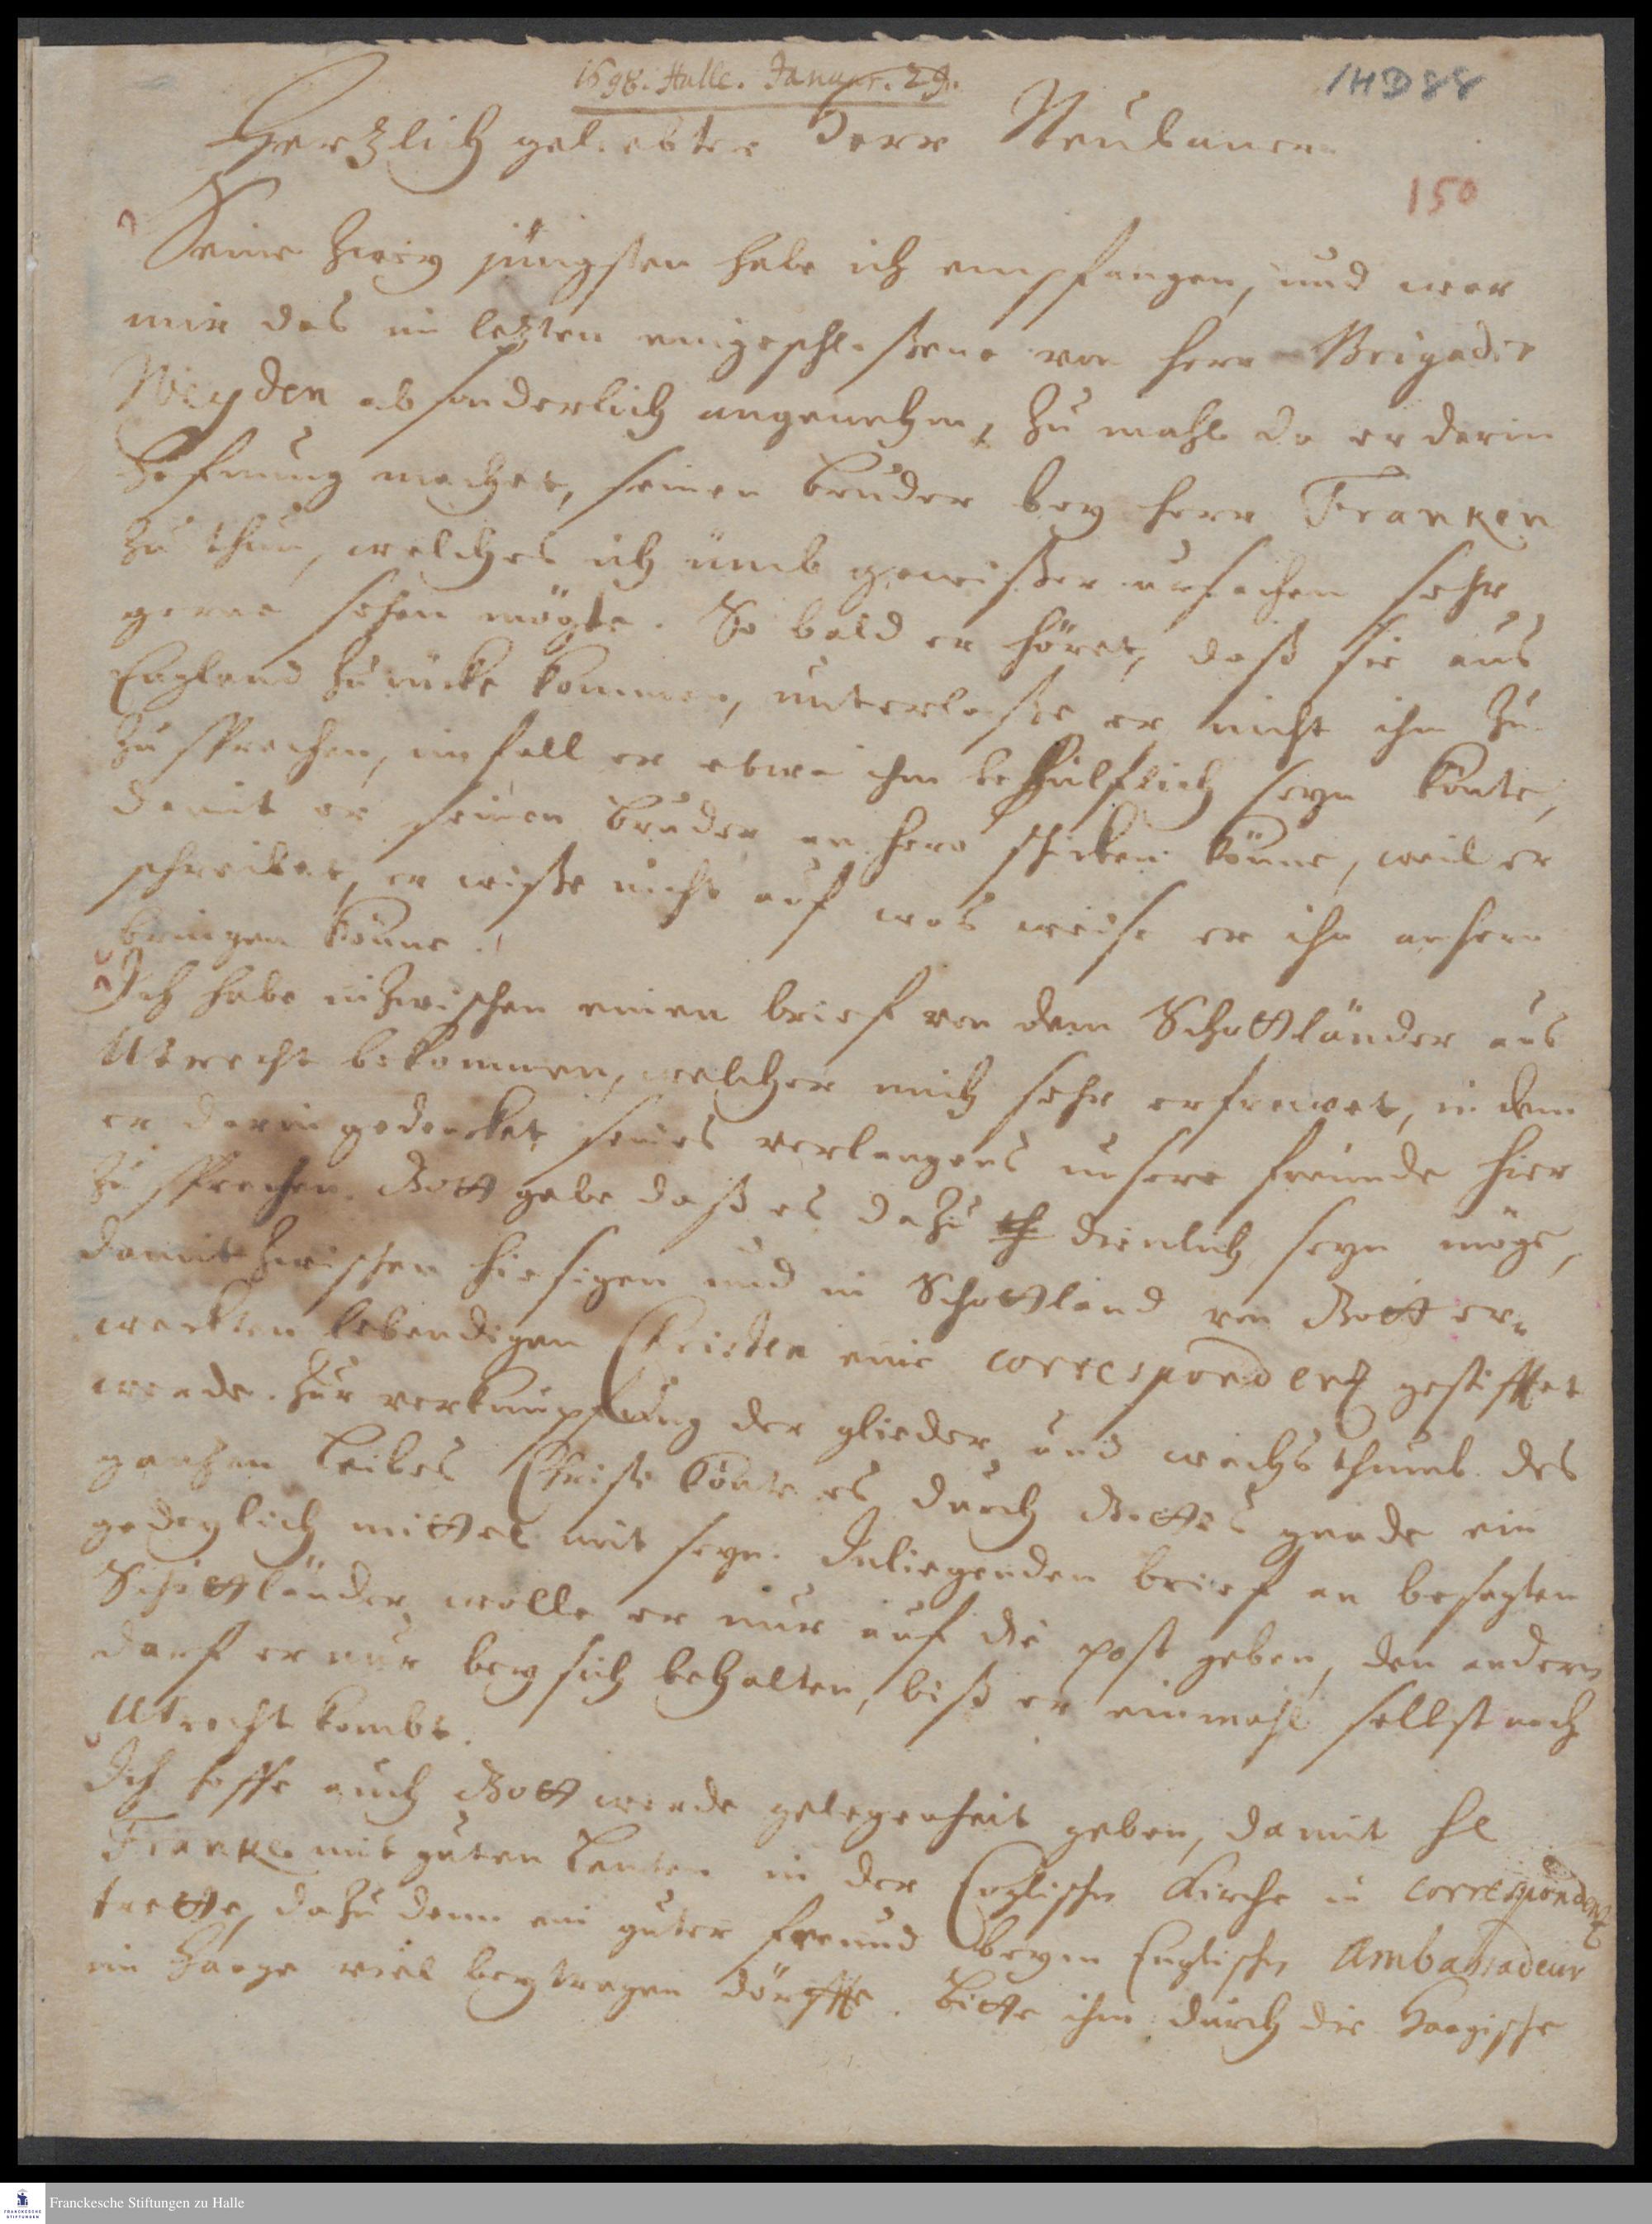 1698. Halle. Januar. 29.
1HD88
Hertzlich geliebter Herr Neubauer.
150
Seine zwey jüngsten habe ich empfangen, und war
mir das im letzten eingeschloßene von Herr Brigadir
Weyden absonderlich angenehm, zu mahl da er darin
hofnung machet, seinen bruder bey Herr Franken
zu thun, welches ich ümb gewißer ursachen sehr
gerne sehen mögte. So bald er höret, daß sie aus
England zurücke kommen, unterlaße er nicht ihm zu
zu sprechen, im fall er etwa ihm behülflich seyn könte,
damit er seinen bruder an hero schicken könne, weil er
schreibet, er wiße nicht auf was weise er ihn anhero
bringen könne.
Ich habe inzwischen einen brief von dem Schottländer aus
Utrecht bekommen, welcher mich sehr erfreuet, in dem
er darin gedencket seines verlangens unsere freunde hier
zu sprechen. Gott gebe daß es dazu dienlich seyn möge,
damit zwischen hiesigen und in Schottland von Gott er¬
weckten lebendigen Christen eine correspondentz gestifftet
werde. Zur verknüpffung der glieder und wachsthumb des
gantzen Leibes Christi könte es durch Gottes gnade ein
gedeylich mittel mit seyn. Inliegenden brief an besagten
Schottländer wolle er nur auf die post geben, den andern
darf er nur bey sich behalten, biß er einmahl selbst nach
Utrecht kombt.
Ich hoffe auch Gott werde gelegenheit geben, damit H
Franke mit guten Leuten in der Englischen Kirche in correspondentz
trette, dazu denn ein guter freund beym Englischen Ambassadeur
im Haage viel beytragen dörffte. Bitte ihm durch die Haagische
Franckesche Stiftungen zu Halle
FRANCKESCHE
STIFTUNGEN